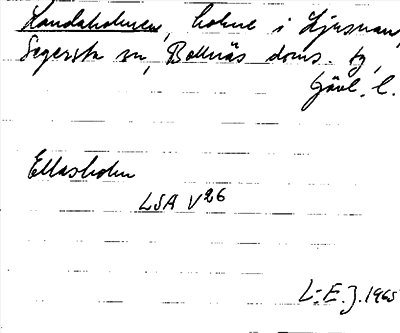 Landaholmen, holme i Ljusnan,
Segersta sn, Bollnäs doms. tg,
Gävl. l.
Ellasholm
LSA V26
L-E. J. 1965